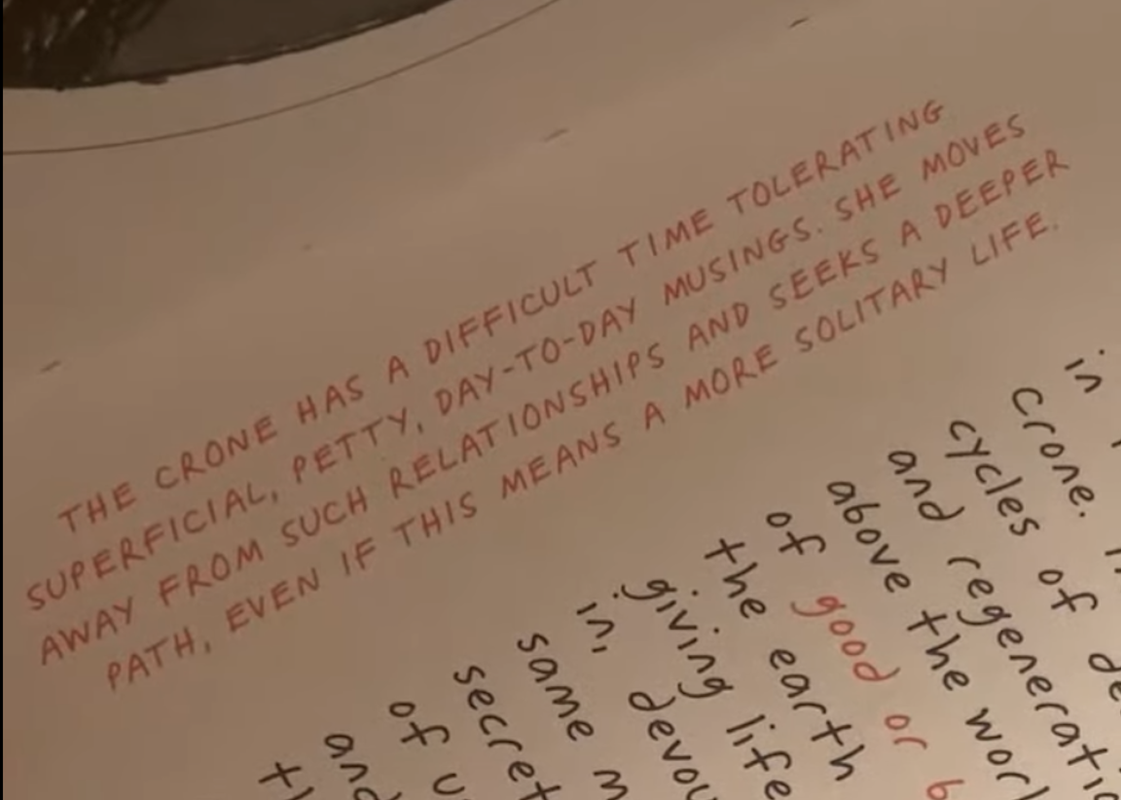 THE CRONE HAS A DIFFICULT TIME TOLERATING
SUPERFICIAL, PETTY, DAY-TO-DAY MUSINGS. SHE MOVES
AWAY FROM SUCH RELATIONSHIPS AND SEEKS A DEEPER
PATH, EVEN IF THIS MEANS A MORE SOLITARY LIFE.
in
crone.
cycles of
and
above the
of good or
the earth
giving life
in,
same
of